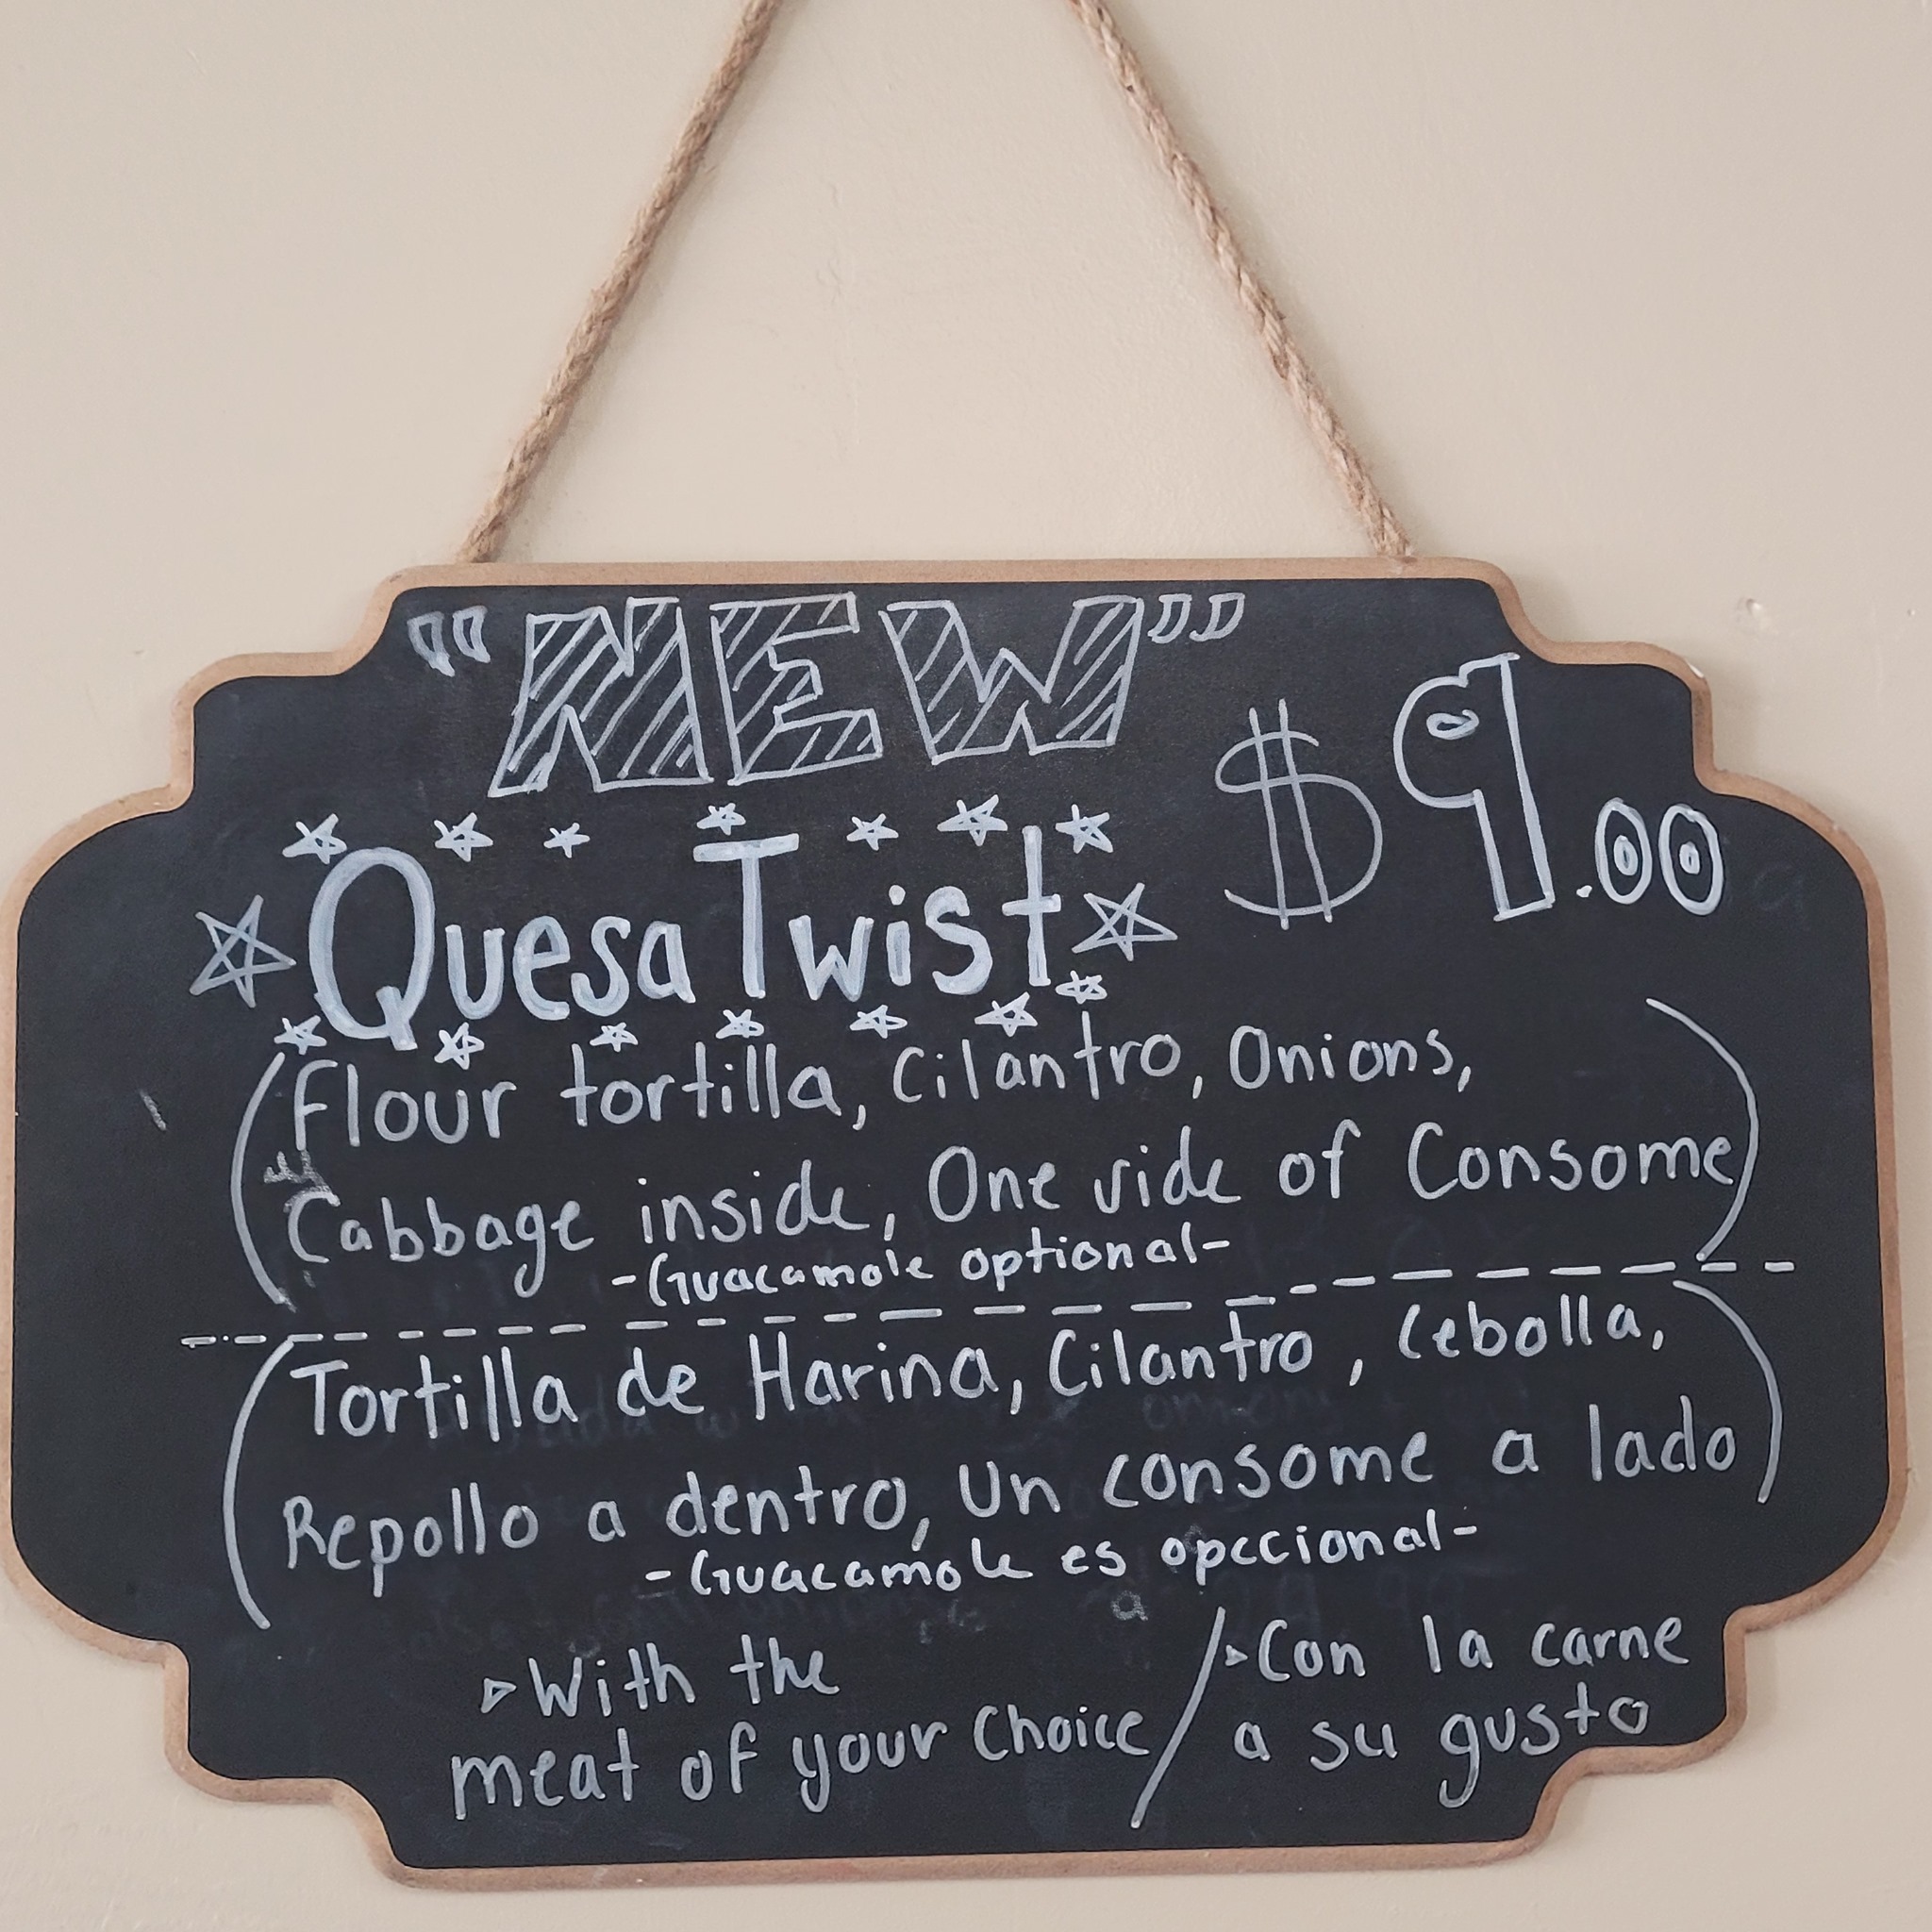 "NEW"
$9.00
Quesa Twist
(Flour tortilla, Cilantro, Onions,
Cabbage inside, One side of Consome)
-Guacamole optional-
(Tortilla de Harina, Cilantro, Cebolla,
Repollo a dentro, Un consome a lado)
-Guacamole es opccional-
With the
meat of your Choice /
Con la carne
a su gusto